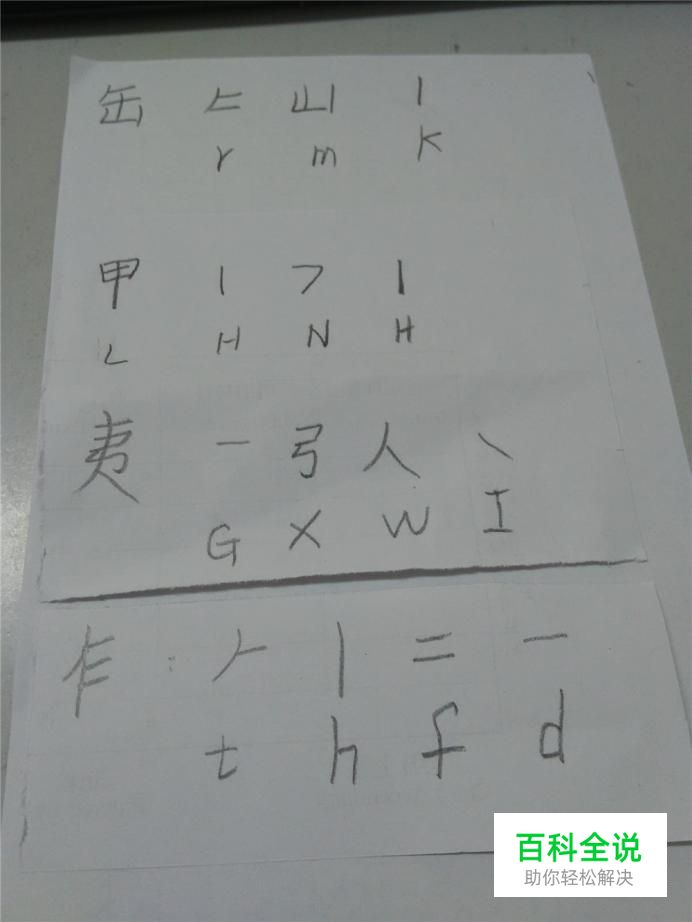 缶 𠂉 山 丨
r m k
甲 丨 乛 丨
L H N H
夷 一 弓 人 丶
G X W I
乍 𠂉 丨 二 一
t h f d
百科全说
助你轻松解决